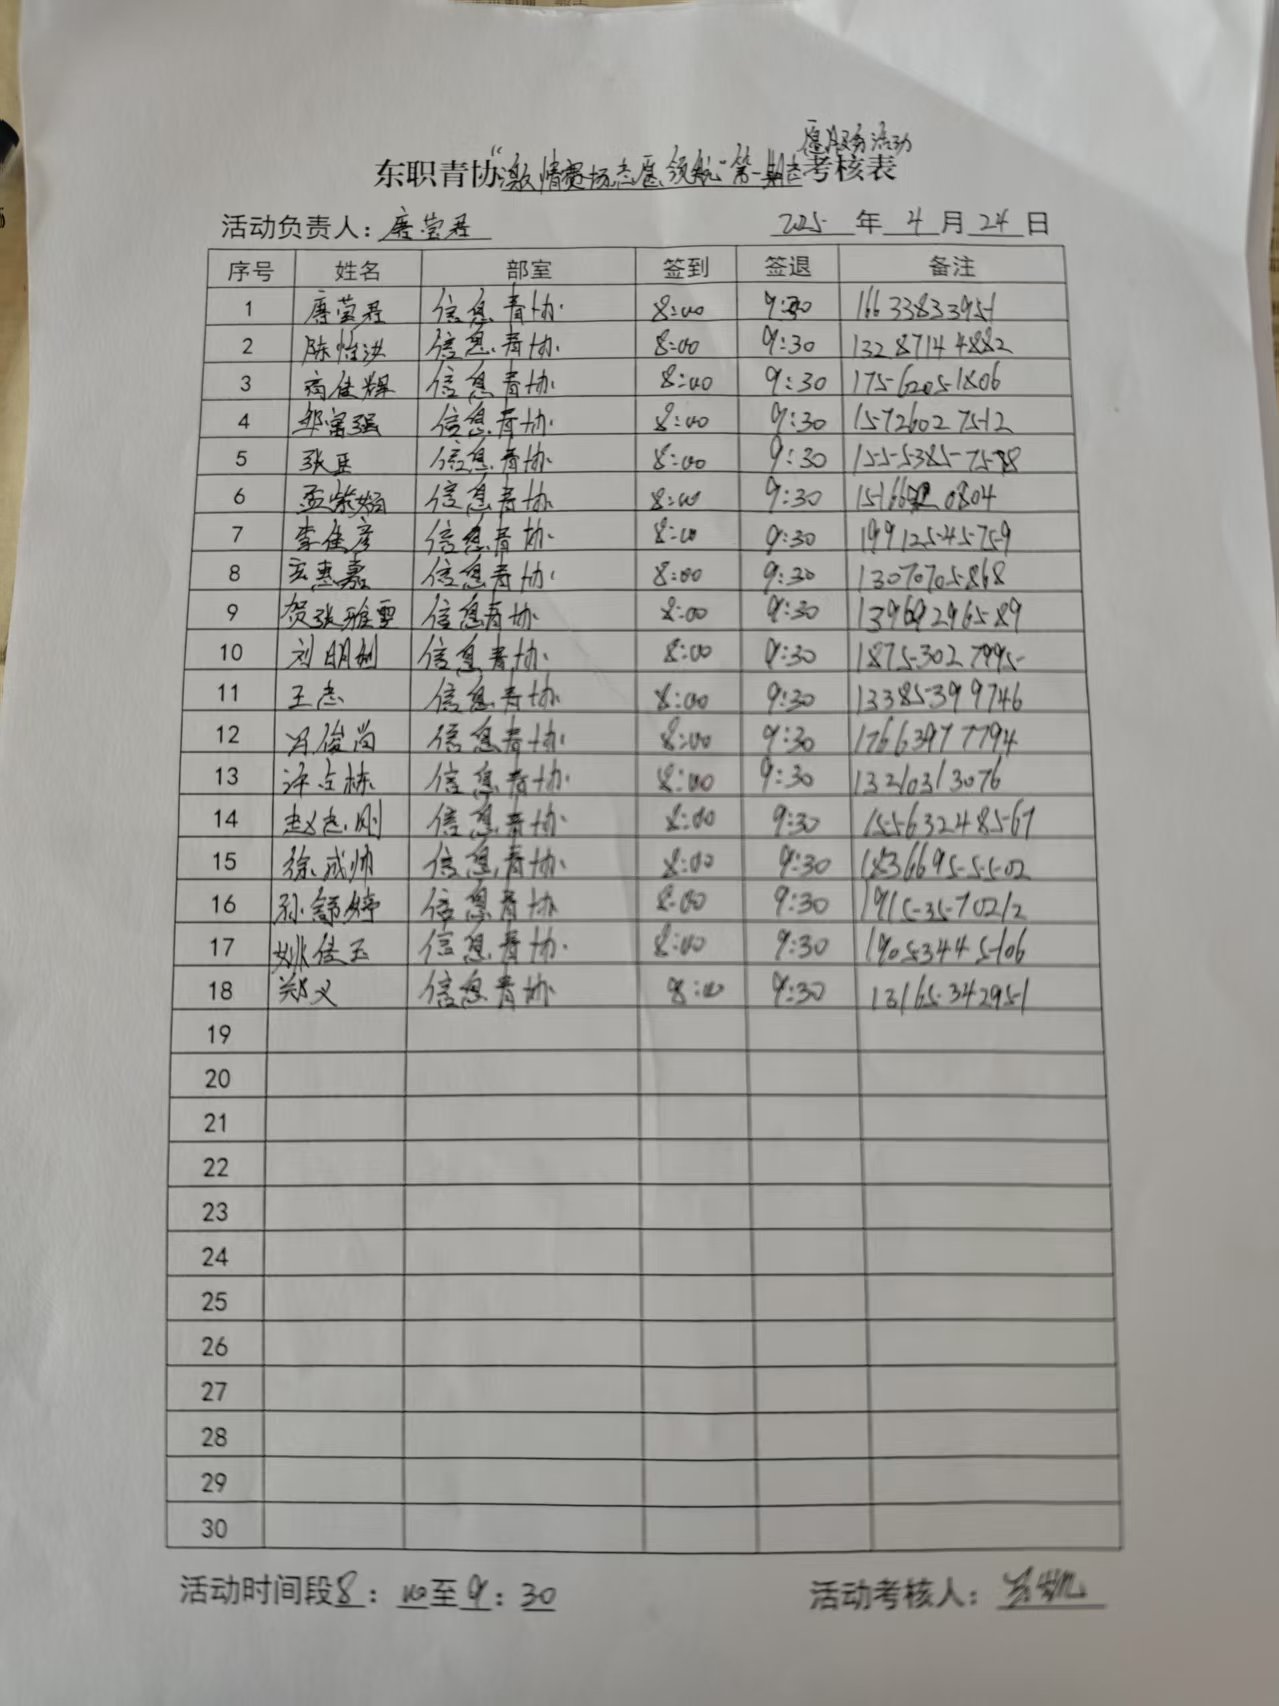 愿服务活动
东职青协"激情赛场志愿领航"第一期志考核表
活动负责人：唐莹君 2025 年 4 月 24 日
序号 姓名 部室 签到 签退 备注
1 唐莹君 信息青协 8:00 9:30 16633833951
2 陈怡洪 信息青协 8:00 9:30 13287144882
3 高佳辉 信息青协 8:00 9:30 17562051806
4 邹富强 信息青协 8:00 9:30 15726027512
5 张正 信息青协 8:00 9:30 15553857588
6 信息青协 8:00 9:30
7 李佳彦 信息青协 8:00 9:30 19912545759
8 惠嘉 信息青协 8:00 9:30 13070705868
9 贺张雅雯 信息青协 8:00 9:30 13969296589
10 刘明 信息青协 8:00 9:30 18753027995
11 王志 信息青协 8:00 9:30 13385399746
12 冯俊尚 信息青协 8:00 9:30 17663977794
13 许占栋 信息青协 8:00 9:30 13210313076
14 赵志刚 信息青协 8:00 9:30 15563248567
15 徐成帅 信息青协 8:00 9:30 18366955502
16 孙舒婷 信息青协 8:00 9:30 19153570212
17 姚佳玉 信息青协 8:00 9:30 19053445106
18 郑义 信息青协 8:00 9:30 13165342951
19
20
21
22
23
24
25
26
27
28
29
30
活动时间段8：00至9：30 活动考核人：